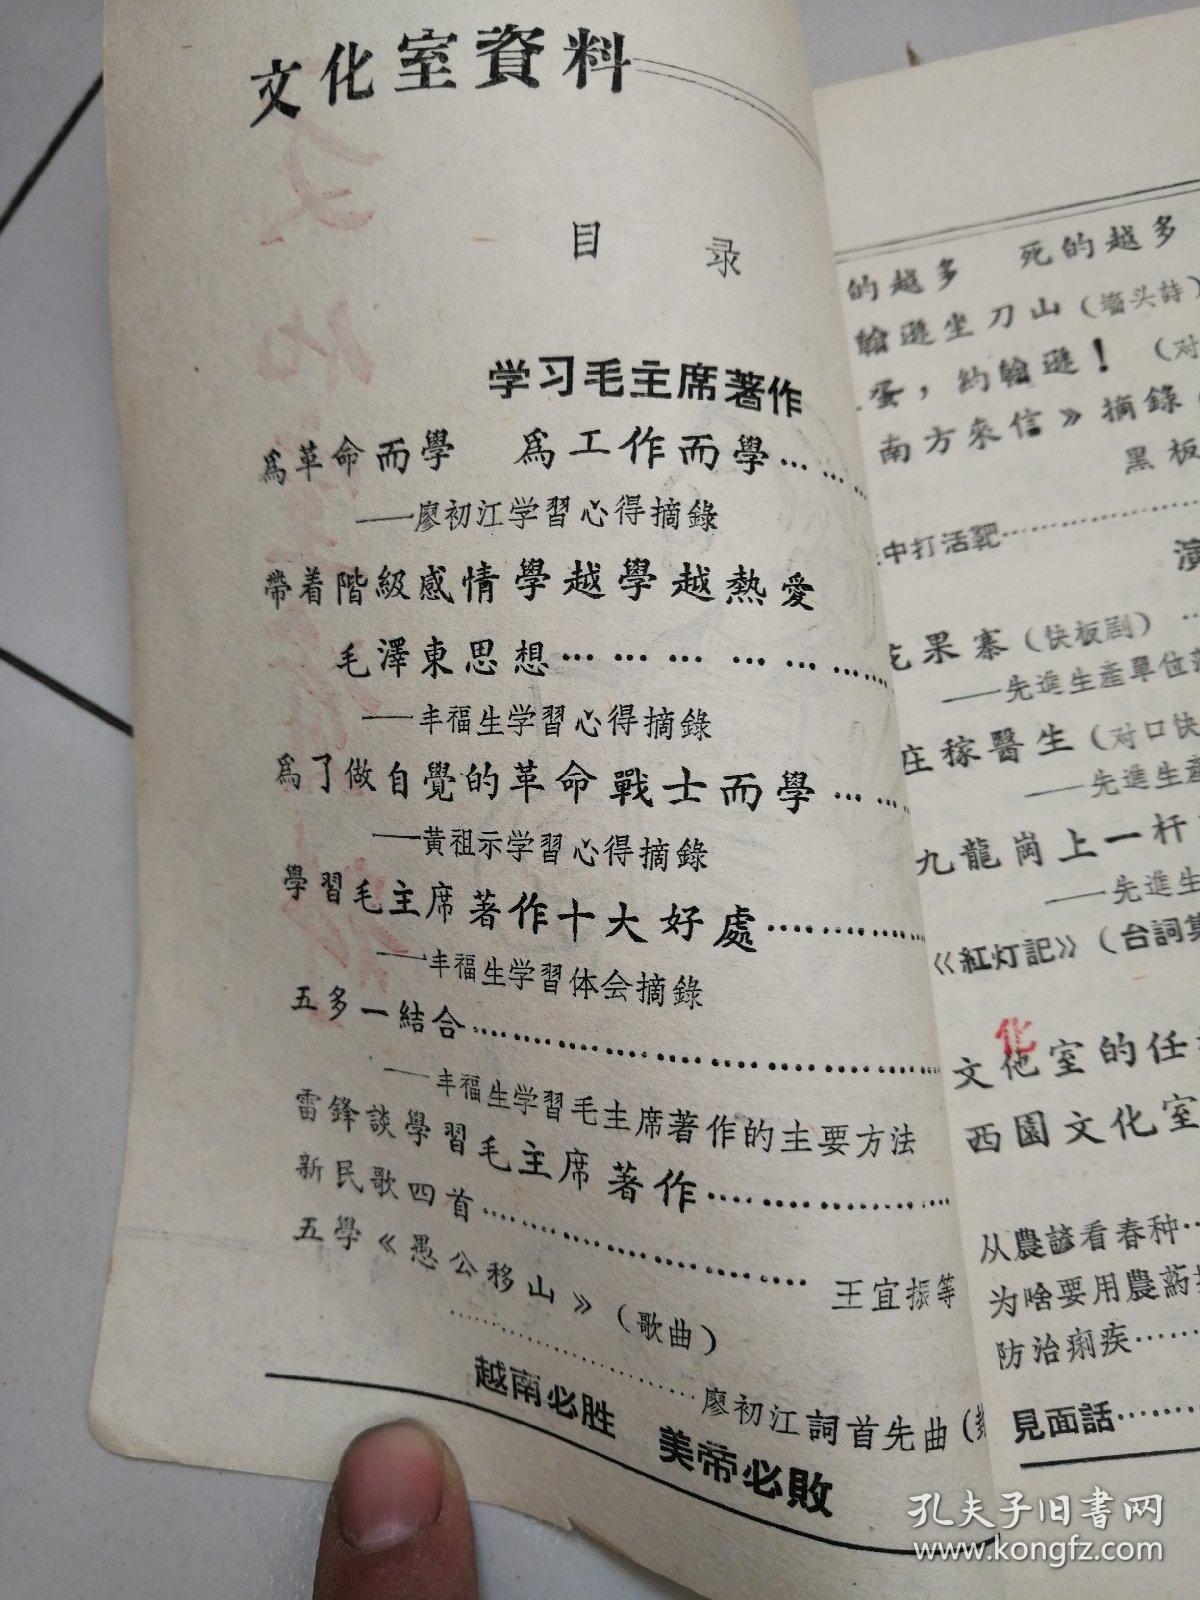 文化室資料
目 录
学习毛主席著作
爲革命而學 爲工作而學……
——廖初江学習心得摘錄
帶着階級感情學越學越熱愛
毛澤東思想………………
——丰福生学習心得摘錄
爲了做自覺的革命戰士而學……
——黃祖示学習心得摘錄
學習毛主席著作十大好處……………
——丰福生学習体会摘錄
五多一結合…………………………
——丰福生学習毛主席著作的主要方法
雷鋒談學習毛主席著作……………
新民歌四首…………………… 王宜振等
五學《愚公移山》(歌曲)
……………………廖初江詞首先曲(
越南必胜 美帝必敗
的越多 死的越多
翰遜坐刀山(墙头詩)
蛋，約翰遜！(对
南方來信》摘錄
黑板
中打活靶……………
演
花果寨(快板剧)……
——先進生產單位
庄稼醫生(对口快
——先進生產
九龍崗上一杆
——先進生
《紅灯記》(台詞
化
文他室的任
西園文化室
从農諺看春种…
为啥要用農葯
防治痢疾……
見面話……
孔夫子旧书网
www.kongfz.com